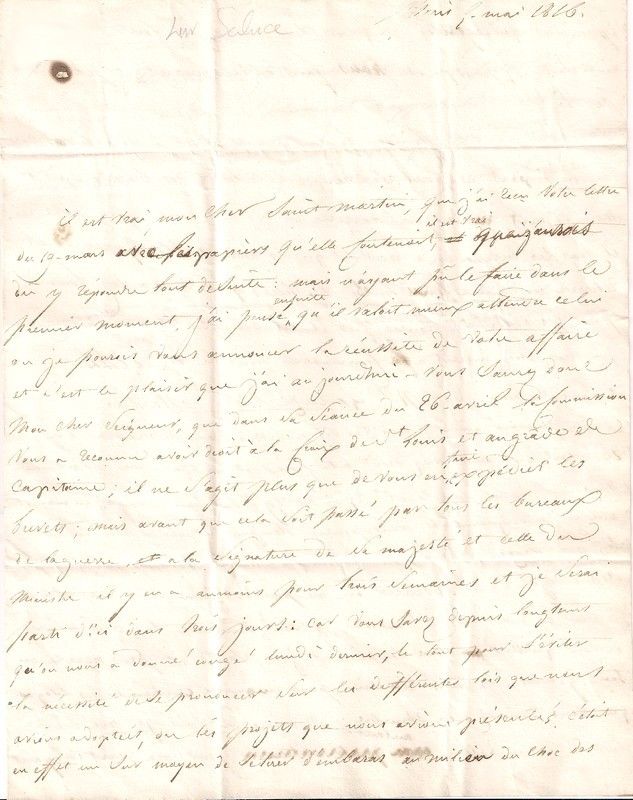 Lur Saluce
Paris mai 1816.
il est vrai, mon cher Saint martin que j'ai recu votre lettre
du 10 mars avec les papiers qu'elle contenoit, il est vrai que j'aurois
du y repondre tout de suite: mais n'ayant pu le faire dans le
premier moment, j'ai pensé ensuite qu'il valoit mieux attendre celui
ou je pourois vous annoncer la réussite de votre affaire
et c'est le plaisir que j'ai aujourdhui. vous saurez donc
Mon cher Seigneur, que dans sa séance du 26 avril la Commission
vous a reconnu avoir droit à la Croix de St louis et au grade de
Capitaine; il ne s'agit plus que de vous en faire expédier les
brevets; mais avant que cela soit passé par tous les bureaux
de la guerre, a la signature de Sa majesté et celle du
Ministre il y en a aumoins pour trois semaines et je serai
parti d'ici dans trois jours: car vous savez depuis longtems
qu'on nous a donné congé lundi dernier, le tout pour s'éviter
la nécessité de se prononcer sur les différentes lois que nous
avions adoptées, ou les projets que nous avions présentés. c'étoit
en effet un sur moyen de se tirer d'embaras au milieu du choc des